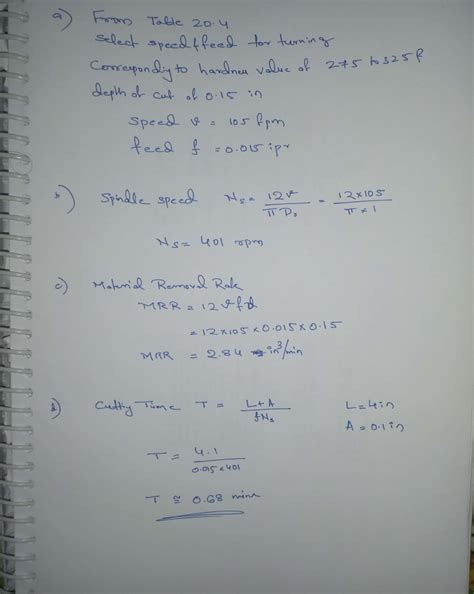 a) From Table 20.4
Select speed & feed for turning
Corresponding to hardness value of 275 to 325 &
depth of cut of 0.15 in
Speed v = 105 fpm
feed f = 0.015 ipr
b) Spindle speed Ns = 12v / πD₁ = 12×105 / π×1
Ns = 401 rpm
c) Material Removal Rate
MRR = 12vfd
= 12×105×0.015×0.15
MRR = 2.84 in³/min
d) Cutting Time T = L+A / fNs L=4in
A = 0.1in
T = 4.1 / 0.015×401
T ≅ 0.68 mins